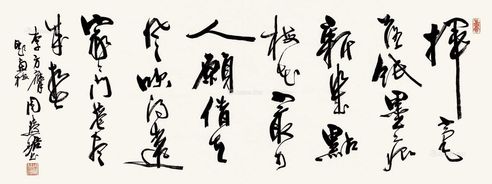 揮毫
落紙墨痕
新幾點
梅花最可
人願借天
風吹得遠
家家門巷盡
成春
李方膺
題畫梅
周慧珺